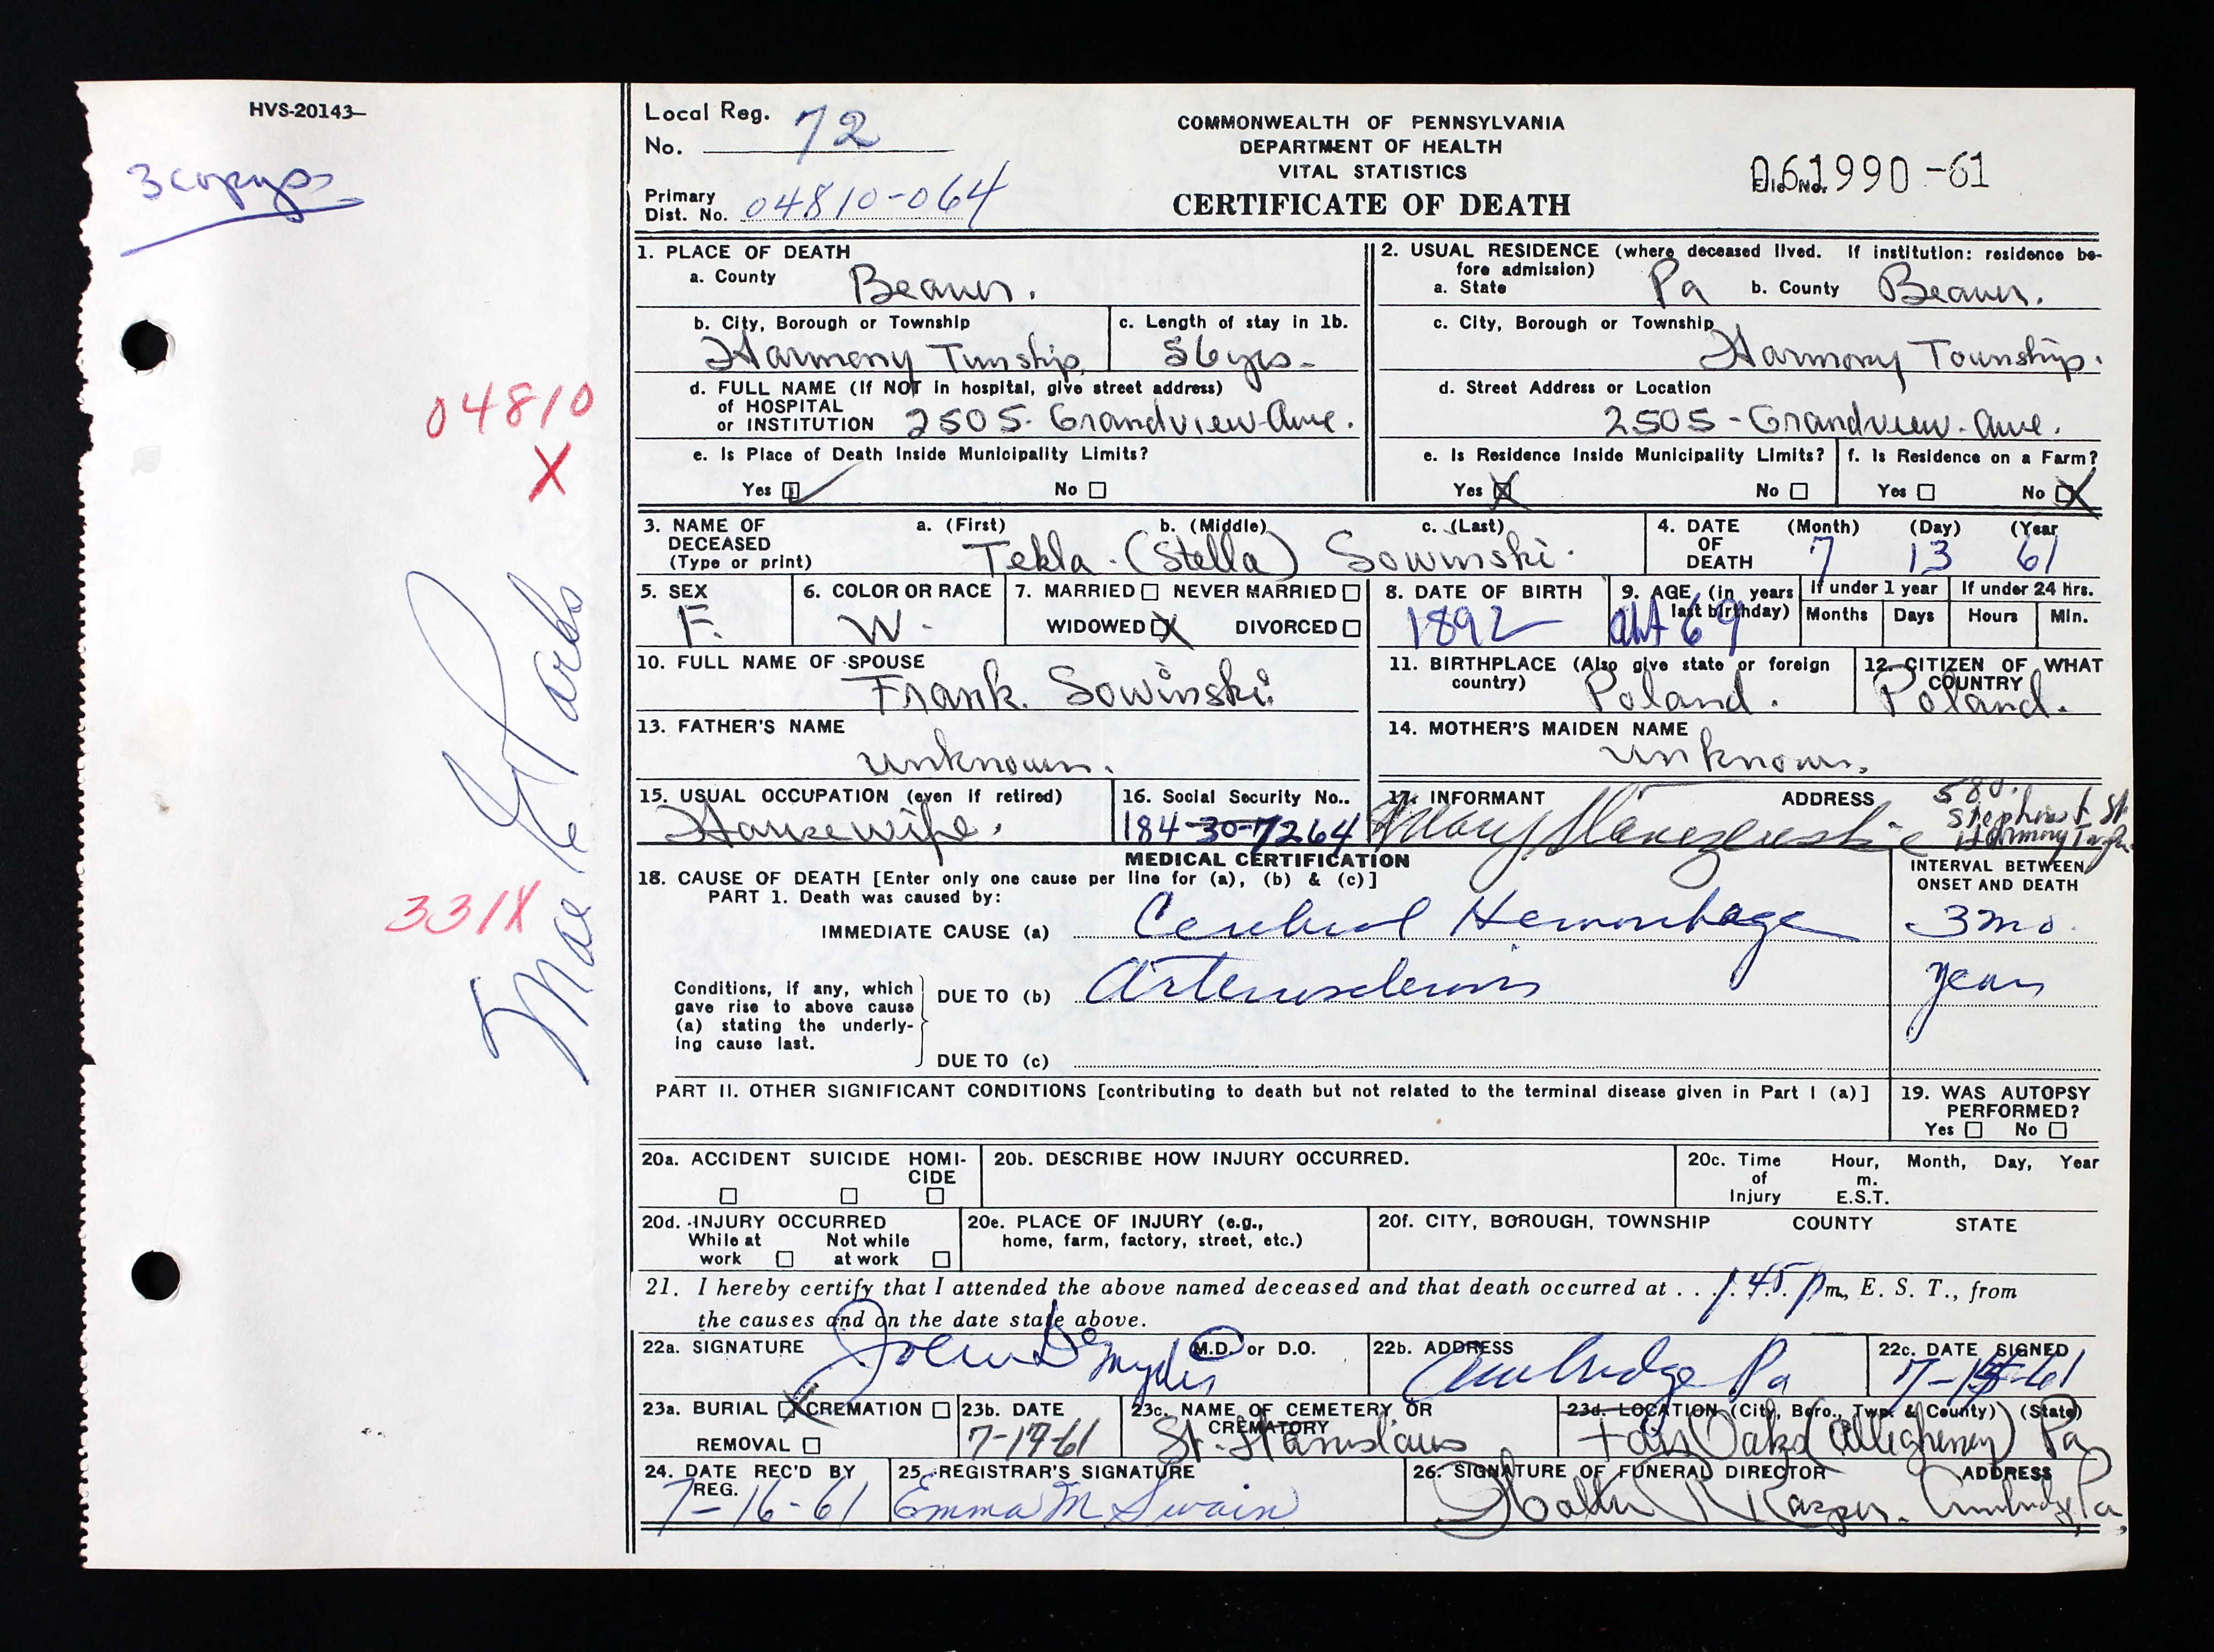 HVS-20143-
3 copys
04810
X
331X
Mae K Parks
Local Reg.
No. 72
Primary
Dist. No. 04810-064
COMMONWEALTH OF PENNSYLVANIA
DEPARTMENT OF HEALTH
VITAL STATISTICS
CERTIFICATE OF DEATH
File No.
061990-61
1. PLACE OF DEATH
a. County Beaver.
b. City, Borough or Township
Harmony Twnship
c. Length of stay in 1b.
56 yrs-
d. FULL NAME (If NOT in hospital, give street address)
of HOSPITAL
or INSTITUTION 2505-Grandview-Ave.
e. Is Place of Death Inside Municipality Limits?
Yes No
2. USUAL RESIDENCE (where deceased lived. If institution: residence be-
fore admission)
a. State Pa b. County Beaver.
c. City, Borough or Township
Harmony Township.
d. Street Address or Location
2505-Grandview-Ave.
e. Is Residence Inside Municipality Limits?
Yes X No
f. Is Residence on a Farm?
Yes No X
3. NAME OF
DECEASED
(Type or print)
a. (First) b. (Middle) c. (Last)
Tekla. (Stella) Sowinski.
4. DATE
OF
DEATH
(Month) (Day) (Year
7 13 61
5. SEX
F.
6. COLOR OR RACE
W.
7. MARRIED NEVER MARRIED
WIDOWED X DIVORCED
8. DATE OF BIRTH
1892
9. AGE (in years
last birthday)
abt 69
If under 1 year
Months Days
If under 24 hrs.
Hours Min.
10. FULL NAME OF SPOUSE
Frank. Sowinski.
11. BIRTHPLACE (Also give state or foreign
country) Poland.
12. CITIZEN OF WHAT
COUNTRY
Poland.
13. FATHER'S NAME
unknown.
14. MOTHER'S MAIDEN NAME
unknown.
15. USUAL OCCUPATION (even if retired)
Housewife.
16. Social Security No..
184-30-7264
17. INFORMANT ADDRESS
Mary
580.
St
Harmony
MEDICAL CERTIFICATION
18. CAUSE OF DEATH [Enter only one cause per line for (a), (b) & (c)]
PART 1. Death was caused by:
INTERVAL BETWEEN
ONSET AND DEATH
IMMEDIATE CAUSE (a) Cerebral Hemorrhage 3 mo.
Conditions, if any, which
gave rise to above cause
(a) stating the underly-
ing cause last.
DUE TO (b) Arteriosclerosis years
DUE TO (c)
PART II. OTHER SIGNIFICANT CONDITIONS [contributing to death but not related to the terminal disease given in Part I (a)]
19. WAS AUTOPSY
PERFORMED?
Yes No
20a. ACCIDENT SUICIDE HOMI-
CIDE
20b. DESCRIBE HOW INJURY OCCURRED.
20c. Time Hour, Month, Day, Year
of m.
Injury E.S.T.
20d. INJURY OCCURRED
While at Not while
work at work
20e. PLACE OF INJURY (e.g.,
home, farm, factory, street, etc.)
20f. CITY, BOROUGH, TOWNSHIP COUNTY STATE
21. I hereby certify that I attended the above named deceased and that death occurred at . . . 1.45 p m., E. S. T., from
the causes and on the date state above.
22a. SIGNATURE M.D. or D.O.
John D Snyder
22b. ADDRESS
Ambridge Pa
22c. DATE SIGNED
7-15-61
23a. BURIAL X CREMATION
REMOVAL
23b. DATE
7-17-61
23c. NAME OF CEMETERY OR
CREMATORY
St. Stanislaus
23d. LOCATION (City, Boro., Twp. & County) (State)
Fair Oaks (Allegheney) Pa
24. DATE REC'D BY
REG.
7-16-61
25. REGISTRAR'S SIGNATURE
Emma M Swain
26. SIGNATURE OF FUNERAL DIRECTOR ADDRESS
Walter R. Ambridge, Pa,